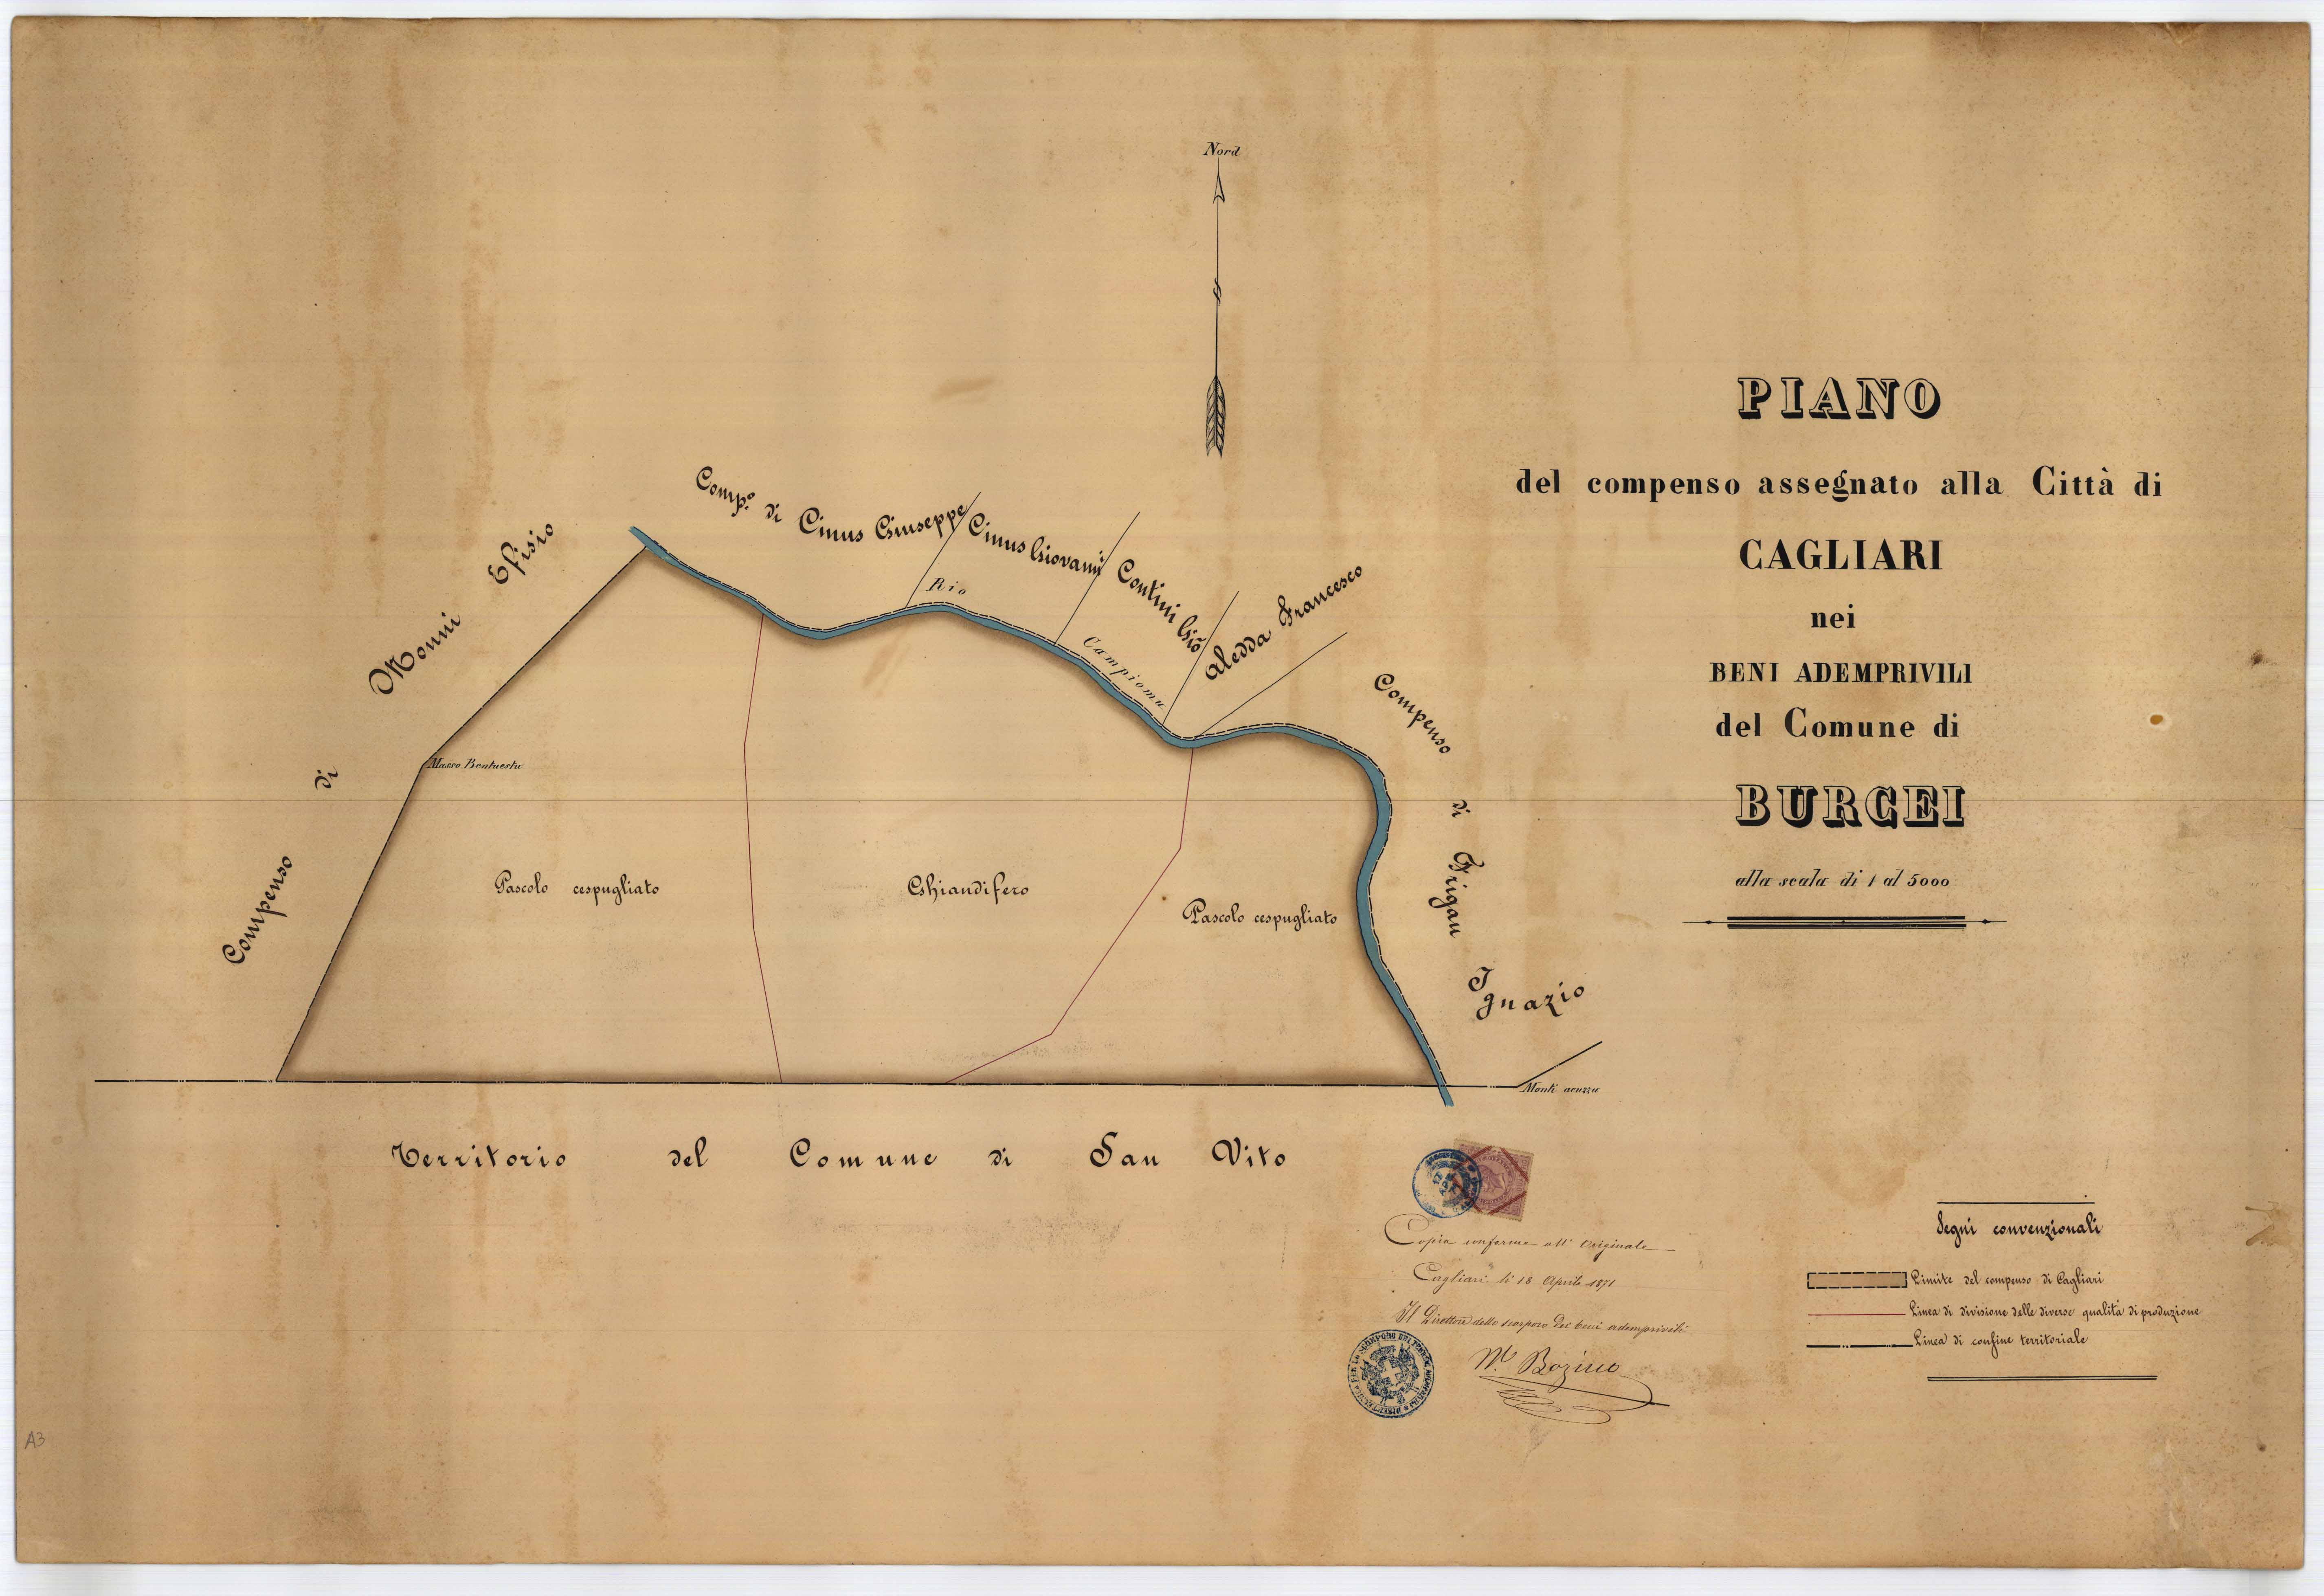 Nord
PIANO
del compenso assegnato alla Città di
CAGLIARI
nei
BENI ADEMPRIVILI
del Comune di
BURCEI
alla scala di 1 al 5000
Comp.º di Cinus Giuseppe
Cinus Giovanni
Contini Giõ
Aledda Francesco
Compenso di Frigau Ignazio
Compenso di Monni Efisio
Rio Campiomu
Masso Bentuestu
Pascolo cespugliato
Ghiandifero
Pascolo cespugliato
Monti acuzzu
Territorio del Comune di San Vito
Copia conforme all' originale
Cagliari li 18 Aprile 1871
Il Direttore dello scorporo dei beni ademprivili
Segni convenzionali
Limite del compenso di Cagliari
Linea di divisione delle diverse qualità di produzione
Linea di confine territoriale
A3